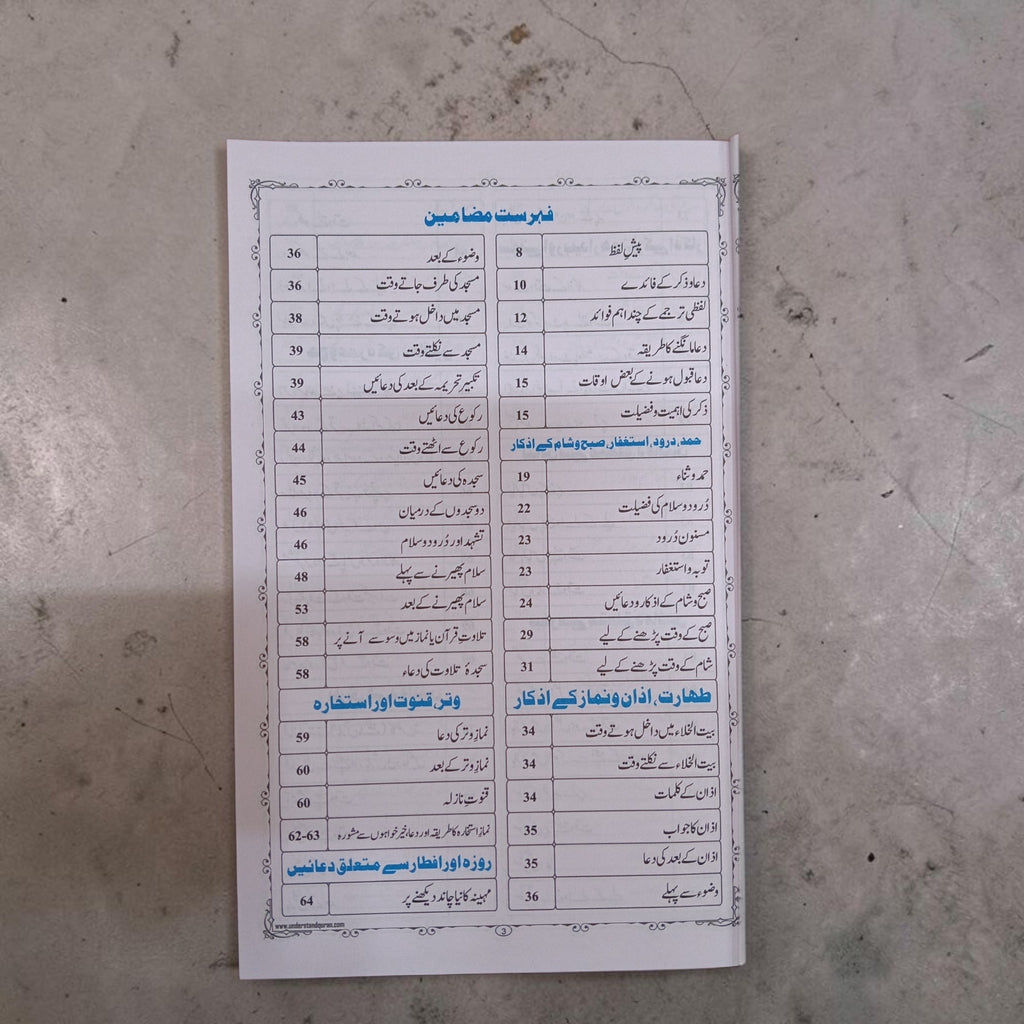 فہرست مضامین
پیشِ لفظ 8
دعا و ذکر کے فائدے 10
لفظی ترجمے کے چند اہم فوائد 12
دعا مانگنے کا طریقہ 14
دعا قبول ہونے کے بعض اوقات 15
ذکر کی اہمیت و فضیلت 15
حمد، درود، استغفار، صبح و شام کے اذکار
حمد و ثناء 19
دُرود و سلام کی فضیلت 22
مسنون دُرود 23
توبہ و استغفار 23
صبح و شام کے اذکار و دعائیں 24
صبح کے وقت پڑھنے کے لیے 29
شام کے وقت پڑھنے کے لیے 31
طہارت، اذان و نماز کے اذکار
بیت الخلاء میں داخل ہوتے وقت 34
بیت الخلاء سے نکلتے وقت 34
اذان کے کلمات 34
اذان کا جواب 35
اذان کے بعد کی دعا 35
وضوء سے پہلے 36
وضوء کے بعد 36
مسجد کی طرف جاتے وقت 36
مسجد میں داخل ہوتے وقت 38
مسجد سے نکلتے وقت 39
تکبیر تحریمہ کے بعد کی دعائیں 39
رکوع کی دعائیں 43
رکوع سے اٹھتے وقت 44
سجدہ کی دعائیں 45
دو سجدوں کے درمیان 46
تشہد اور دُرود و سلام 46
سلام پھیرنے سے پہلے 48
سلام پھیرنے کے بعد 53
تلاوتِ قرآن یا نماز میں وسوسے آنے پر 58
سجدۂ تلاوت کی دعاء 58
وتر، قنوت اور استخارہ
نمازِ وتر کی دعا 59
نمازِ وتر کے بعد 60
قنوتِ نازلہ 60
نمازِ استخارہ کا طریقہ اور دعا، خیر خواہوں سے مشورہ 62-63
روزہ اور افطار سے متعلق دعائیں
مہینہ کا نیا چاند دیکھنے پر 64
www.understandquran.com
3